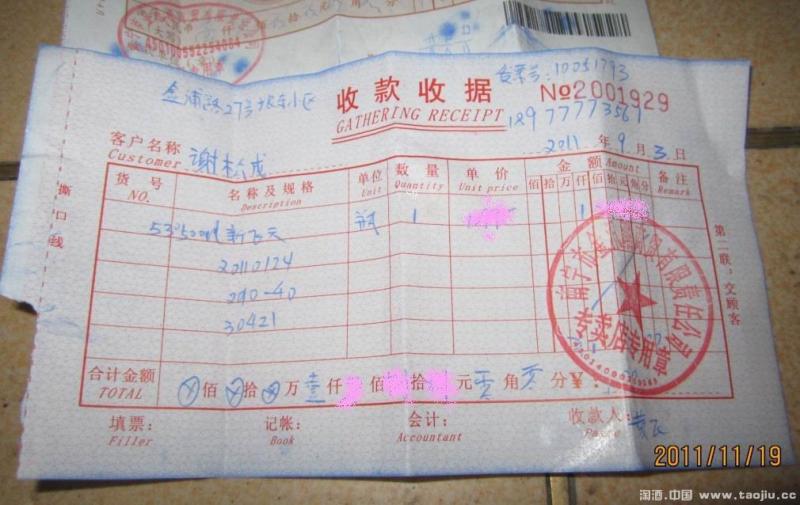 发票号:10051793
金浦路27号
收款收据
GATHERING RECEIPT
№2001929
18977773567
2011年9月3日
客户名称
Customer
谢松成
货号
NO.
名称及规格
Description
单位
Unit
数量
Quantity
单价
Unit price
金额 Amount
佰拾万仟佰拾元角分
备注
Remark
53°500ml新飞天
瓶
1
1
20110124
240-40
30421
专卖店专用章
合计金额
TOTAL
佰 拾 万 壹仟 佰 拾 元 零角 零分 ¥:
填票:
Filler
记帐:
Book
会计:
Accountant
收款人:
撕口线
第二联,交顾客
2011/11/19
淘酒.中国 www.taojiu.cc